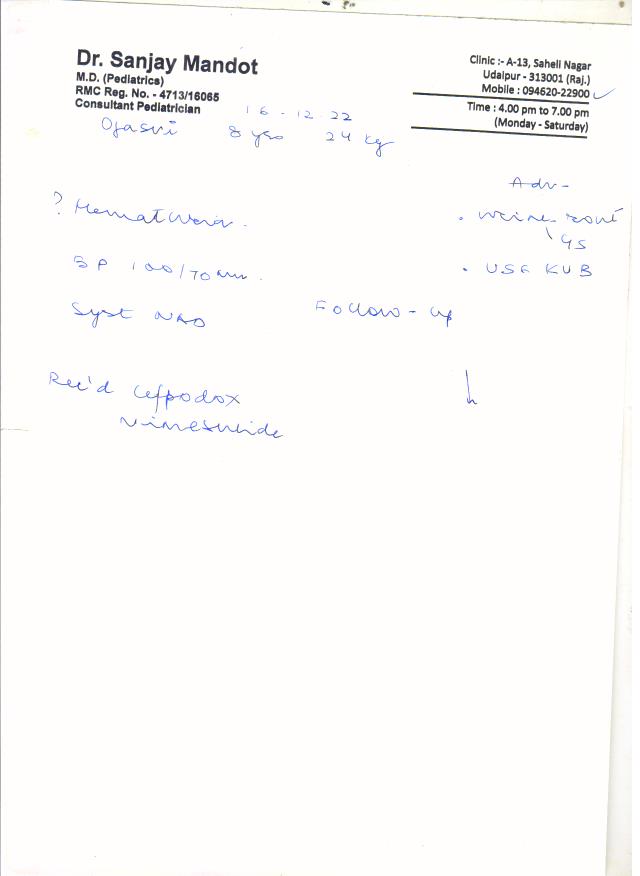 Dr. Sanjay Mandot
M.D. (Pediatrics)
RMC Reg. No. - 4713/16065
Consultant Pediatrician
Clinic :- A-13, Saheli Nagar
Udaipur - 313001 (Raj.)
Mobile : 094620-22900
Time : 4.00 pm to 7.00 pm
(Monday - Saturday)
16-12-22
Ojasvi 8 yrs 24 kg
? Hematuria.
BP 100/70 mm.
Syst NAD
Rec'd Cefpodox
Nimesulide
Adv-
. Urine
. USG KUB
Follow-up